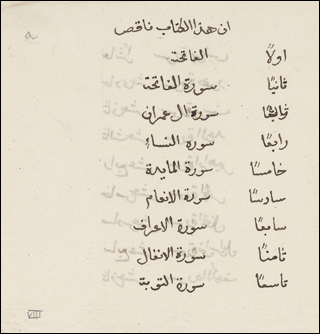 ان هذا الكتاب ناقص
a
اولًا الفاتحة
ثانيًا سورة الفاتحة
ثالثًا سورة ال عمران
رابعًا سورة النساء
خامسًا سورة المايدة
سادسًا سورة الانعام
سابعًا سورة الاعراف
ثامنًا سورة الانفال
تاسعًا سورة التوبة
VIII